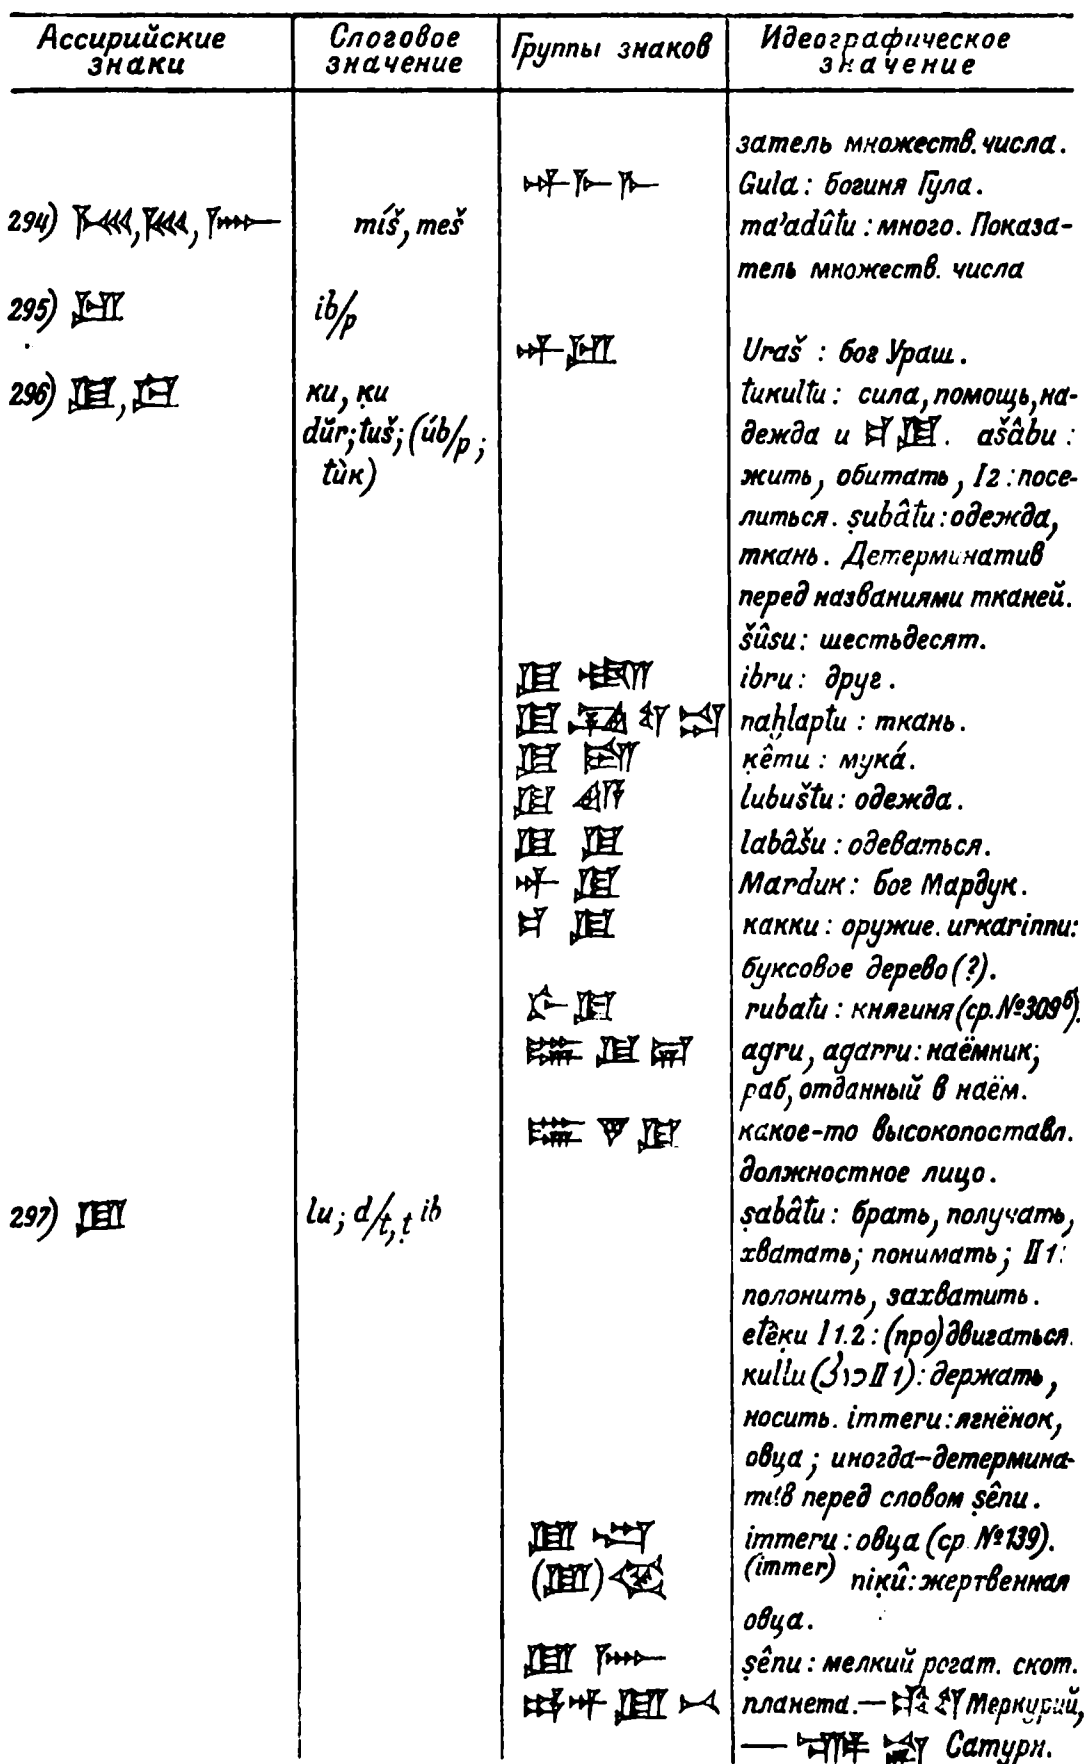 Ассирийские знаки Слоговое значение Группы знаков Идеографическое значение
затель множеств. числа.
𒀭𒈨𒈨 Gula: богиня Гула.
294) míš, meš ma'adûtu: много. Показа-
тель множеств. числа
295) 𒅁 ib/p
𒀭𒅁 Uraš : бог Ураш.
296) 𒆪 ku, ḳu tukultu: сила, помощь, на-
dŭr; tuš; (úb/p; дежда и 𒄑𒆪. ašâbu:
tùk) жить, обитать, I2: посе-
литься. ṣubâtu: одежда,
ткань. Детерминатив
перед названиями тканей.
šûsu: шестьдесят.
ibru: друг.
naḫlaptu: ткань.
ḳêmu: мукá.
lubuštu: одежда.
𒆪 𒆪 labâšu: одеваться.
𒀭 𒆪 Marduk: бог Мардук.
𒄑 𒆪 kakku: оружие. urkarinnu:
буксовое дерево (?).
rubatu: княгиня (ср. №309б).
agru, agarru: наёмник;
раб, отданный в наём.
какое-то высокопоставл.
должностное лицо.
297) 𒇻 lu; d/t, ṭ ib ṣabâtu: брать, получать,
хватать; понимать; II 1:
полонить, захватить.
etêḳu I 1.2: (про)двигаться.
kullu (כול II 1): держать,
носить. immeru: ягнёнок,
овца; иногда—детермина-
тив перед словом ṣênu.
immeru: овца (ср. №139).
(𒇻) (immer) niḳû: жертвенная
овца.
ṣênu: мелкий рогат. скот.
планета. — Меркурий,
— Сатурн.